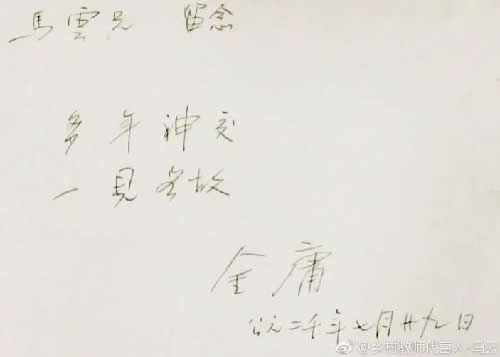 馬雲兄 留念
多年神交
一見如故
金庸
公元二千年七月廿九日
@乡村教师代言人-马云